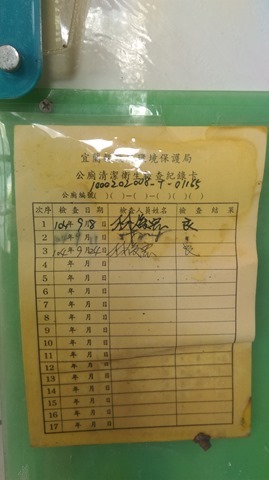 宜蘭縣政府環境保護局
公廁清潔衛生檢查紀錄卡
1000202008-T-01165
公廁編號( )( )-( )-( )( )( )( )
次序 檢查日期 檢查人員姓名 檢查結果
1 104年9月8日 良
2 年 月 日
3 104年9月24日 良
4 年 月 日
5 年 月 日
6 年 月 日
7 年 月 日
8 年 月 日
9 年 月 日
10 年 月 日
11 年 月 日
12 年 月 日
13 年 月 日
14 年 月 日
15 年 月 日
16 年 月 日
17 年 月 日